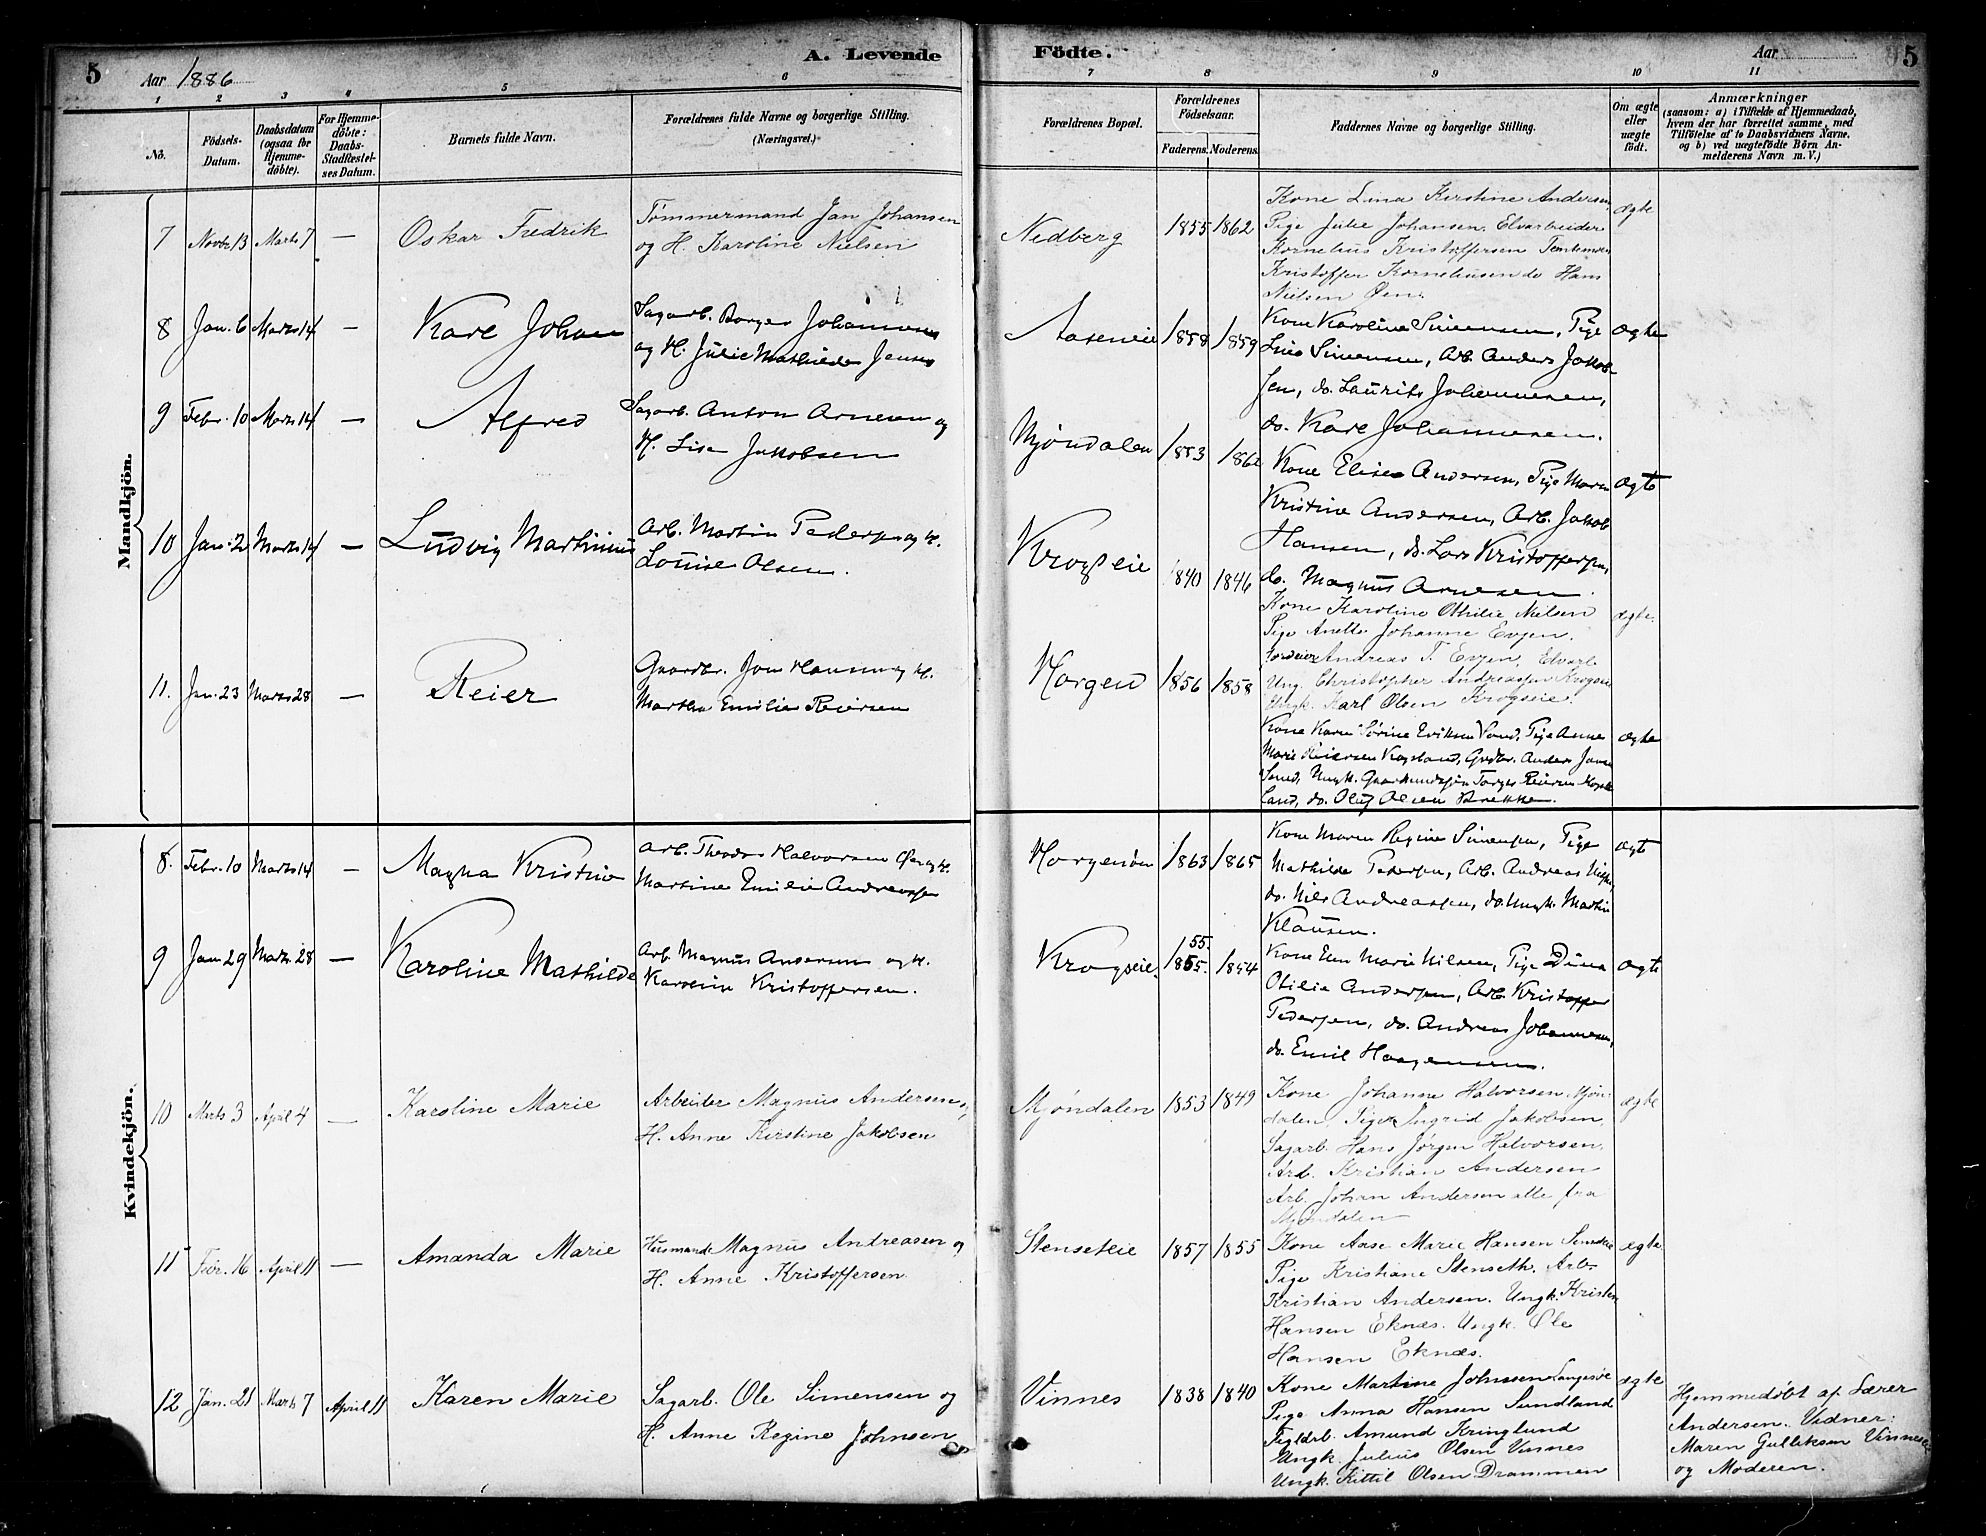 5
Aar 1886
A. Levende
Födte.
Aar
5
1 2 3 4 5 6 7 8 9 10 11
No.
Födsels-Datum.
Daabsdatum (ogsaa for Hjemme-döbte).
For Hjemme-döbte: Daabs-Stadfæstel-ses Datum.
Barnets fulde Navn.
Forældrenes fulde Navne og borgerlige Stilling. (Næringsvei.)
Forældrenes Bopæl.
Forældrenes Födselsaar.
Faderens. Moderens.
Faddernes Navne og borgerlige Stilling.
Om ægte eller uægte födt.
Anmærkninger
(saasom: a) i Tilfælde af Hjemmedaab,
hvem der har forrettet samme, med
Tilföielse af to Daabsvidners Navne,
og b) ved uægtefödte Börn An-
melderens Navn m. V.)
Mandkjön.
7 Novbr. 13 Marts 7 — Oskar Fredrik
Tømmermand Jan Johansen
og H. Karoline Nielsen
Nedberg 1855 1862
Kone Lina Kirstine Andersen,
Pige Julie Johansen, Elvarbeider
Kornelius Kristoffersen
Kristoffer Korneliusen do Hans
Nielsen Øen.
ægte
8 Jan. 6 Marts 14 — Karl Johan
Sagarb. Borger Johannesen
og H. Julie Mathilde Jensen
Aaseneie 1858 1859
Kone Karoline Simensen, Pige
Lina Simensen, Arb. Anders Jakob-
sen, do. Laurits Johannesen,
do. Karl Johannesen.
Ægte
9 Febr. 10 Marts 14 — Alfred
Sagarb. Anton Arnesen og
H. Lise Jakobsen
Mjøndalen 1853 186
Kone Elise Andersen, Pige Maren
Kristine Andersen, Arb. Jakob
Hansen, do. Lars Kristoffersen,
do. Magnus Arnesen.
Ægte
10 Jan. 2 Marts 14 — Ludvig Martinius
Arb. Martin Pedersen og H.
Louise Olsen.
Krogseie 1840 1846
Kone Karoline Othilie Nielsen
Pige Anette Johanne Evjen.
Andreas T. Evjen, Elvarb.
Ung. Christopher Andreassen Krogseie
Ungk. Karl Olsen Krogseie.
ægte.
11. Jan. 23 Marts 28 — Reier
Gaardbr. Jon Hansen og H.
Martha Emilie Reiersen
Horgen 1856 1858
Kone Karen Sørine Eriksen Sand, Pige Anne
Marie Reiersen Kopland, Grdbr. Anders Jansen
Sand, Ungk. Gaardmandssøn Torger Reiersen Kop-
land, do. Oluf Olsen Brekke.
Ægte
Kvindekjön.
8. Febr. 10 Marts 14 — Magna Kristine
Arb. Theodor Halvorsen Øen og H.
Martine Emilie Andreassen
Horgenøen 1863 1865
Kone Maren Regine Simensen, Pige
Mathilde Pedersen, Arb. Andreas
do. Nils Andreassen, do. Ungk. Martin
Klausen.
Ægte
9 Jan 29 Marts 28 — Karoline Mathilde
Arb. Magnus Andersen og H.
Karoline Kristoffersen.
Krogseie. 55. 1855. 1854
Kone Elen Marie Nilsen, Pige Dina
Otilie Andersen, Arb. Kristoffer
Pedersen, do. Andreas Johannesen,
do. Emil Haagensen.
Ægte
10 Marts 3 April 4 — Karoline Marie
Arbeider Magnus Andersen,
H. Anne Kirstine Jakobsen
Mjøndalen 1853 1849
Kone Johanne Halvorsen, Mjøn-
dalen, Pige Ingrid Jakobsen
Sagarb. Hans Jørgen Halvorsen,
Arb. Kristian Andersen
Arb. Johan Andersen alle fra
Mjøndalen
ægte
11 Febr. 16 April 11 — Amanda Marie
Husmand Magnus Andreasen og
H. Anne Kristoffersen
Stenseteie 1857 1855
Kone Aase Marie Hansen
Pige Kristiane Stenseth. Arb.
Kristian Andersen. Ungk. Kristen
Hansen Eknæs. Ungk. Ole
Hansen Eknæs.
ægte
12 Jan. 21 Marts 7 April 11 Karen Marie
Sagarb. Ole Simensen og
H. Anne Regine Johnsen
Vinnes 1838 1840
Kone Martine Johnsen Langesøe
Pige Anna Hansen Sundland
Teglarb. Amund Kringlund
Ungk. Julius Olsen Vinnes
Ungk. Kittil Olsen Drammen
ægte
Hjemmedøbt af Lærer
Andersen. Vidner:
Maren Gulliksen Vinnes
og Moderen.